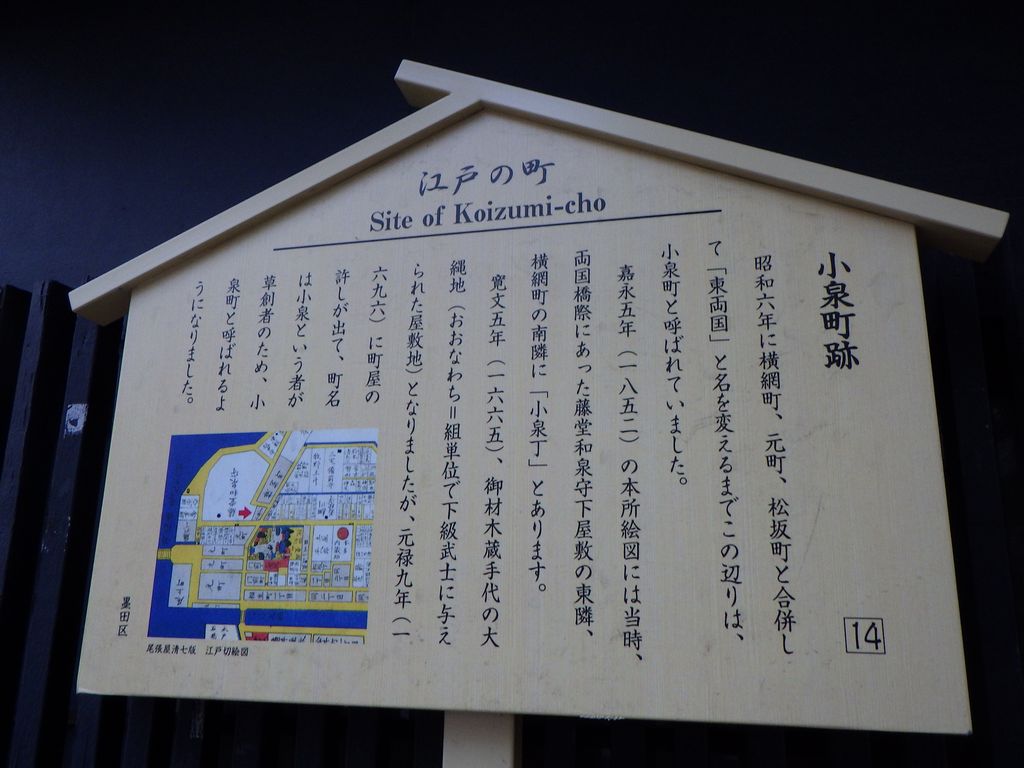 江戸の町
Site of Koizumi-cho
小泉町跡
昭和六年に横網町、元町、松坂町と合併し
て「東両国」と名を変えるまでこの辺りは、
小泉町と呼ばれていました。
嘉永五年（一八五二）の本所絵図には当時、
両国橋際にあった藤堂和泉守下屋敷の東隣、
横網町の南隣に「小泉丁」とあります。
寛文五年（一六六五）、御材木蔵手代の大
縄地（おおなわち＝組単位で下級武士に与え
られた屋敷地）となりましたが、元禄九年（一
六九六）に町屋の
許しが出て、町名
は小泉という者が
草創者のため、小
泉町と呼ばれるよ
うになりました。
14
尾張屋清七版 江戸切絵図
墨田区